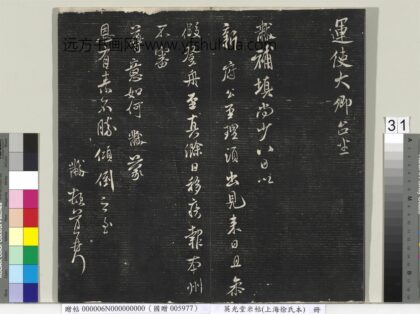 運使大卿台坐
黻補填尚少八日以
新府公至理須出見来日且参
假登舟至真滁日移府報本州
不審
尊意如何黻蒙
恩有素不勝傾倒之至
黻頓首
远方书画网-www.yfshuhua.com
31
贈帖 000006N000000000 (國贈 005977) 英光堂米帖(上海徐氏本) 冊